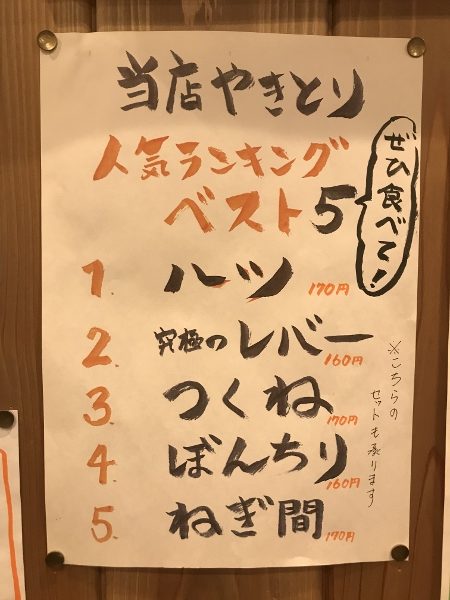 当店やきとり
人気ランキング
ベスト5
ぜひ食べて!
1. ハツ 170円
2. 究極のレバー 160円
3. つくね 170円
4. ぼんちり 160円
5. ねぎ間 170円
※こちらの
セットも承ります